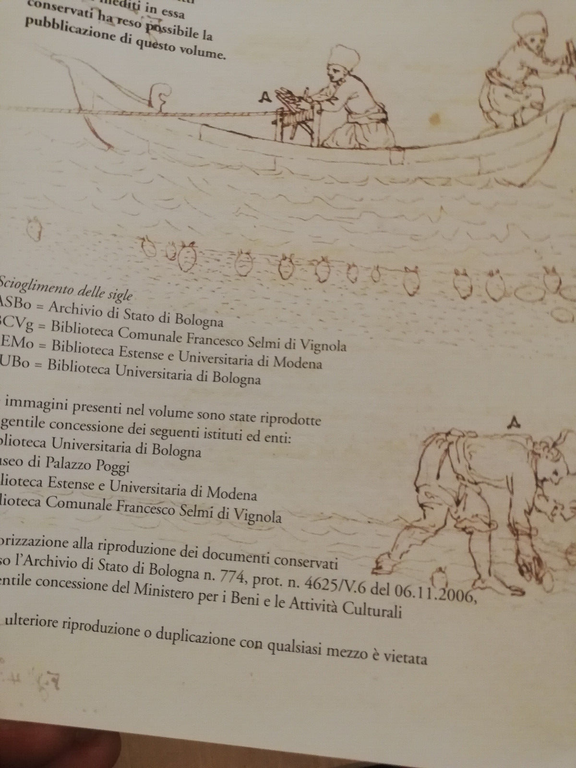 inediti in essa
conservati ha reso possibile la
pubblicazione di questo volume.
A
Scioglimento delle sigle
ASBo = Archivio di Stato di Bologna
BCVg = Biblioteca Comunale Francesco Selmi di Vignola
EMo = Biblioteca Estense e Universitaria di Modena
UBo = Biblioteca Universitaria di Bologna
immagini presenti nel volume sono state riprodotte
gentile concessione dei seguenti istituti ed enti:
blioteca Universitaria di Bologna
useo di Palazzo Poggi
blioteca Estense e Universitaria di Modena
blioteca Comunale Francesco Selmi di Vignola
A
orizzazione alla riproduzione dei documenti conservati
so l'Archivio di Stato di Bologna n. 774, prot. n. 4625/V.6 del 06.11.2006,
entile concessione del Ministero per i Beni e le Attività Culturali
ulteriore riproduzione o duplicazione con qualsiasi mezzo è vietata